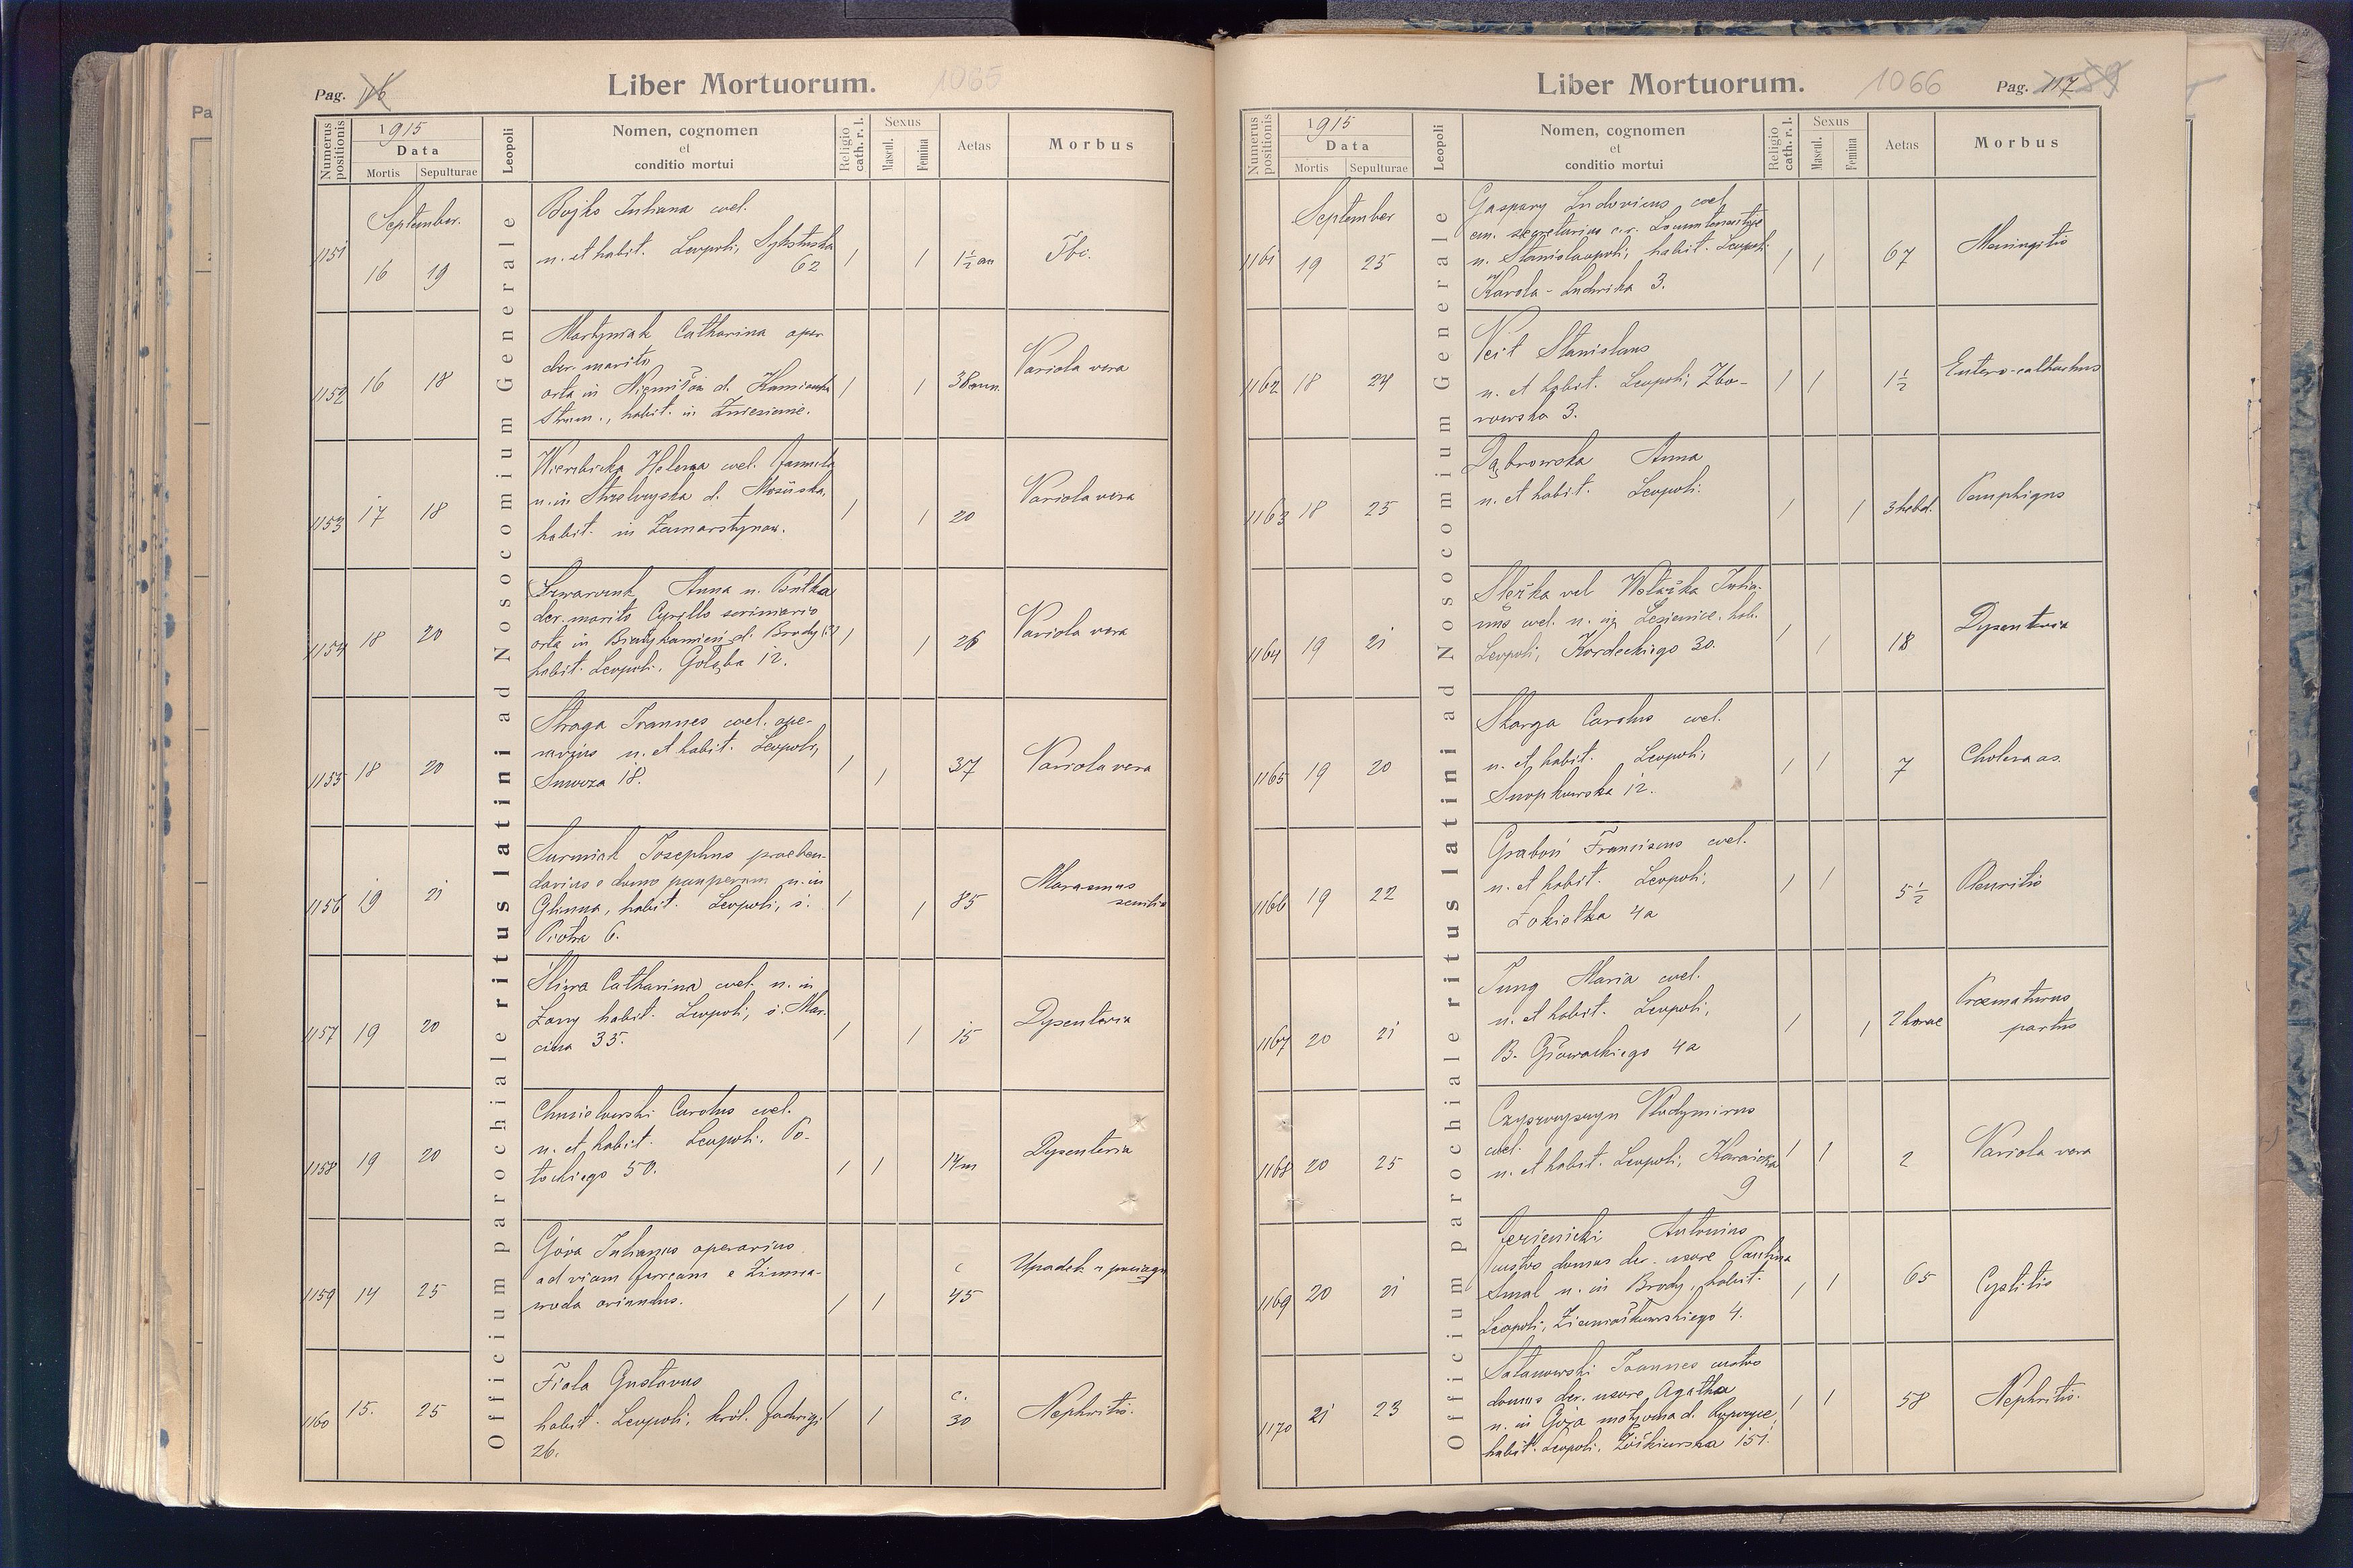 Pag. 116
Liber Mortuorum.
1065
Numerus positionis
1915
Data
Mortis
Sepulturae
Leopoli
Nomen, cognomen
et
conditio mortui
Religio cath. r. l.
Sexus
Mascul.
Femina
Aetas
Morbus
Officium parochiale ritus latini ad Nosocomium Generale
September.
1151 16 19
Bojko Juliana coel.
n. et habit. Leopoli, Sykstuska
62
1 1 1½ an Tbc.
1152 16 18
Martyniak Catharina oper
der. marito
orta in d. Kamionka
Strum., habit. in Zniesienie.
1 1 38 ann. Variola vera
1153 17 18
Wierzbicka Helena coel. famula
n. in d. Mościska,
habit. in Zamarstynow.
1 1 20 Variola vera
1154 18 20
Anna n.
der. marito Cyrillo scriniario
orta in Białykamień d. Brody (?)
habit. Leopoli, Gołąba 12.
1 1 26 Variola vera
1155 18 20
Straga Joannes coel. ope-
rarius n. et habit. Leopoli,
18.
1 1 37 Variola vera
1156 19 21
Surmiak Josephus praeben-
darius e domo pauperum n. in
Glinna, habit. Leopoli, ś.
Piotra 6.
1 1 85 Marasmus
senilis
1157 19 20
Śliwa Catharina coel. n. in
habit. Leopoli, ś. Mar-
cina 35.
1 1 15 Dysenteria
1158 19 20
Chmielowski Carolus coel.
n. et habit. Leopoli, Po-
tockiego 50.
1 1 14 m Dysenteria
1159 14 25
Góra Julianus operarius
ad viam ferream e Zimna-
woda oriundus.
1 1 c 45 Upadek z pociągu
1160 15. 25
Fiala Gustavus
habit. Leopoli, król. Jadwigi
26.
1 1 c. 30 Nephritis.
Liber Mortuorum.
1066
Pag. 117
Numerus positionis
1915
Data
Mortis
Sepulturae
Leopoli
Nomen, cognomen
et
conditio mortui
Religio cath. r. l.
Sexus
Mascul.
Femina
Aetas
Morbus
Officium parochiale ritus latini ad Nosocomium Generale
September
1161 19 25
Gaspary Ludovicus coel.
em. secretarius c. r.
n. Stanislaopoli, habit. Leopoli
Karola - Ludwika 3.
1 1 67 Meningitis
1162 18 24
Veit Stanislaus
n. et habit. Leopoli, Zbo-
rowska 3.
1 1 1½
1163 18 25
Dąbrowska Anna
n. et habit. Leopoli.
1 1 3 hebd. Pemphigus
1164 19 21
vel Julia-
nus coel. n. in Lesienice, hab.
Leopoli, Kordeckiego 30.
1 1 18 Dysenteria
1165 19 20
Skarga Carolus coel.
n. et habit. Leopoli,
Snopkowska 12.
1 1 7 Cholera as.
1166 19 22
Graboń Franciscus coel.
n. et habit. Leopoli,
Łokietka 4a
1 1 5½ Pleuritis
1167 20 21
Jung Maria coel.
n. et habit. Leopoli,
B. Głowackiego 4a
1 1 2 horae Praematurus
partus
1168 20 25
Vladymirus
coel.
n. et habit. Leopoli,
9
1 1 2 Variola vera
1169 20 21
Jezienicki Antonius
custos domus der. uxore Paulina
n. in Brody, habit.
Leopoli, Ziemiałkowskiego 4.
1 1 65 Cystitis
1170 21 23
Satanowski Joannes custos
domus der. uxore Agatha
n. in Góra d.
habit. Leopoli, Żółkiewska 151.
1 1 58 Nephritis.